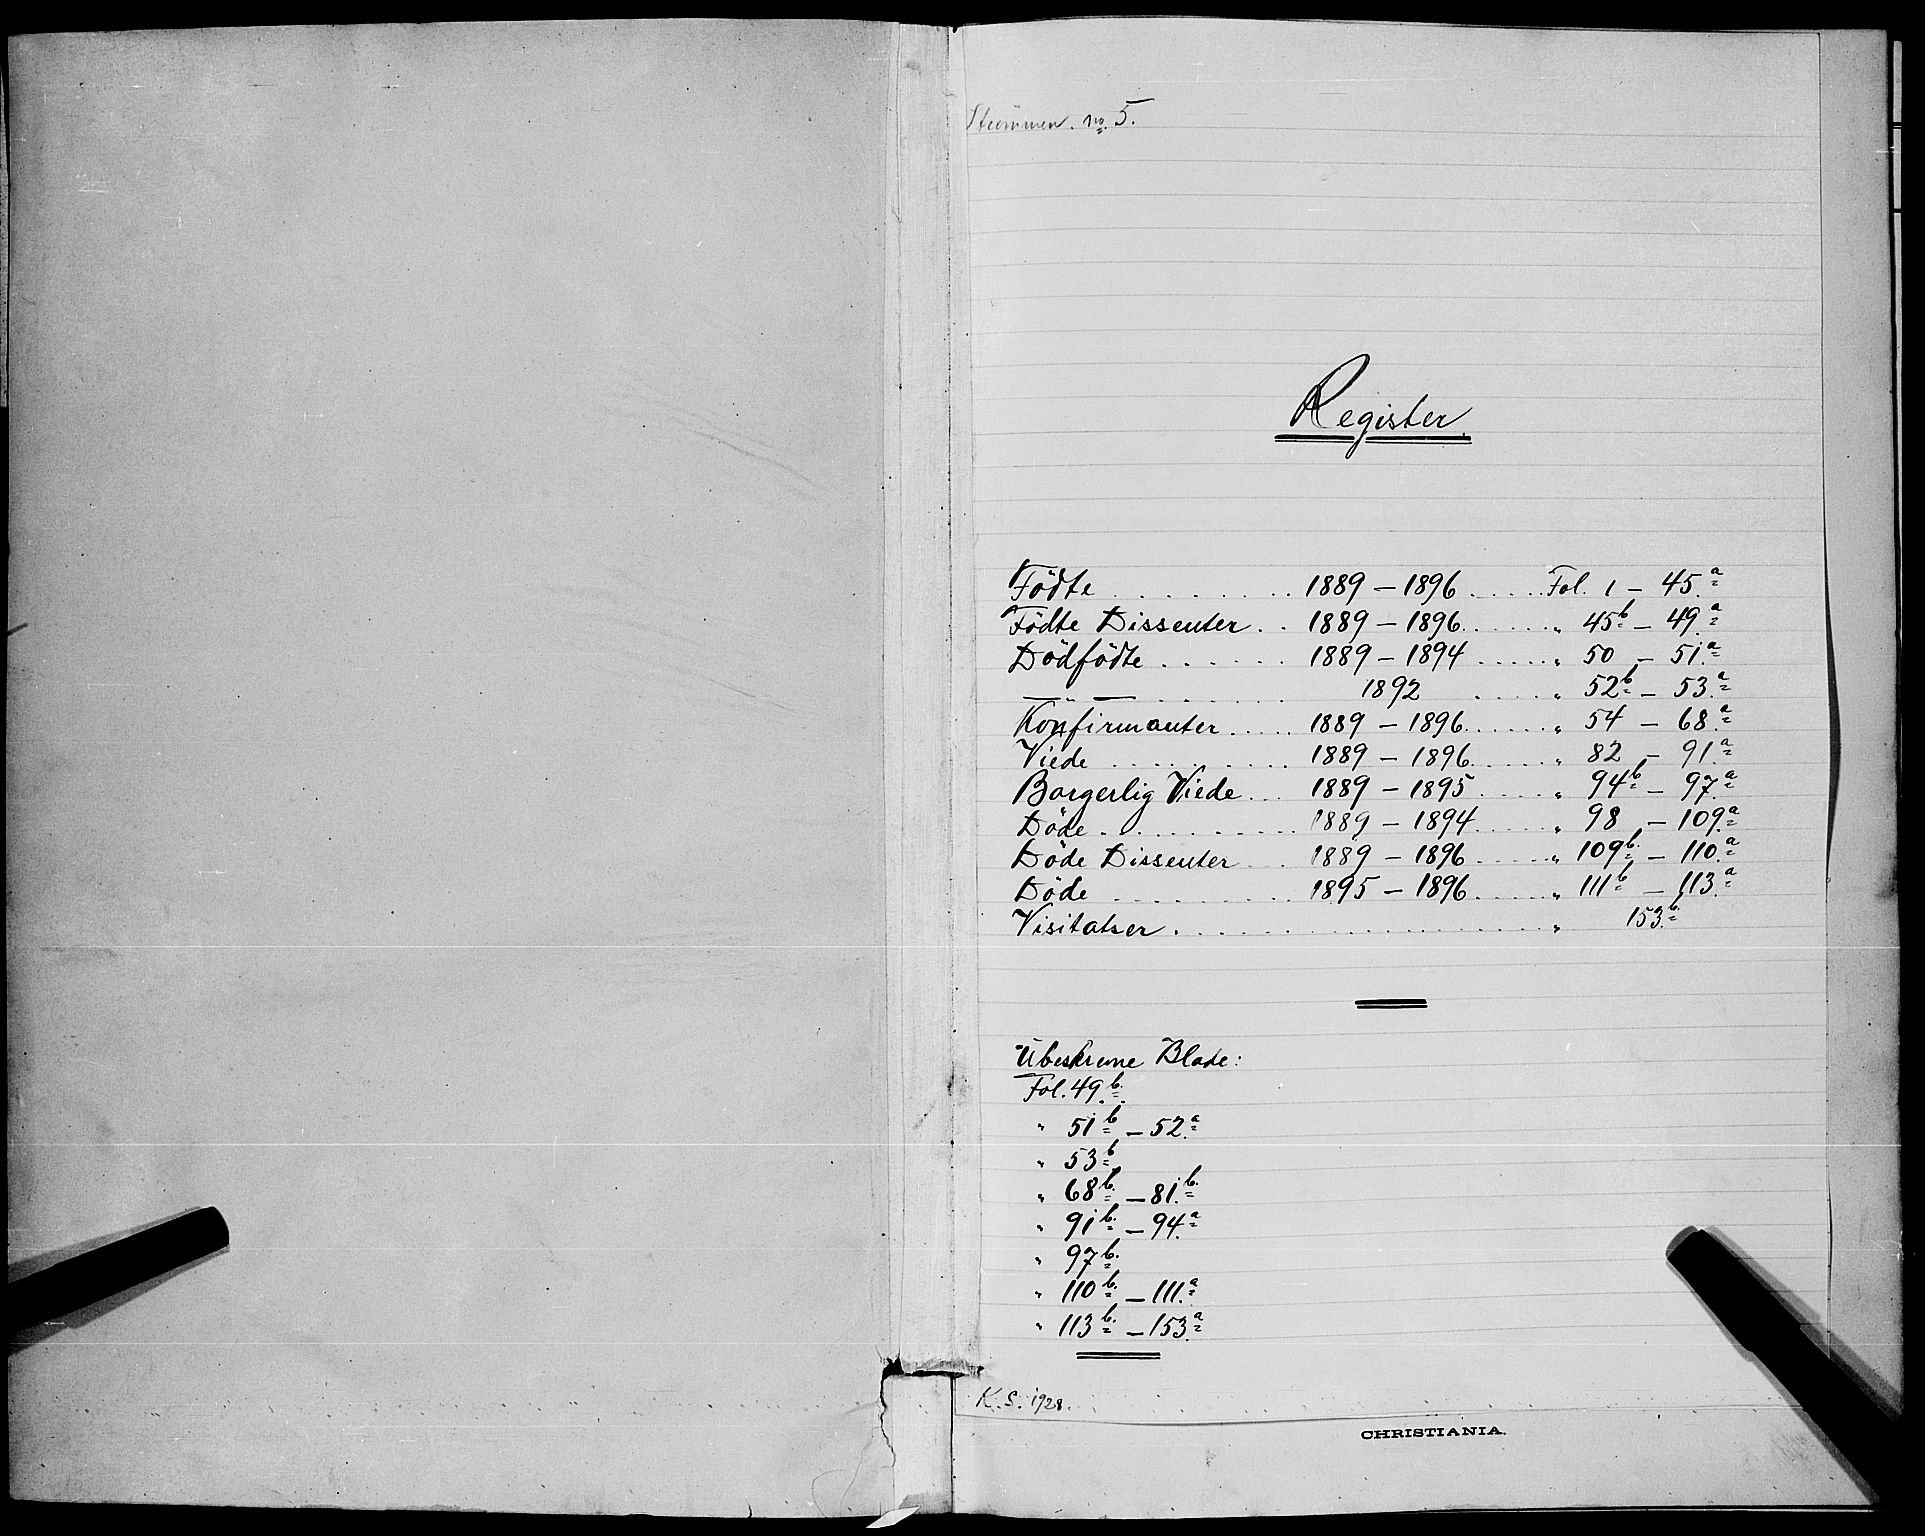 Strømmen. no. 5.
Register.
Födte . . . . . . . . . 1889 – 1896 . . . . . Fol. 1 – 45.a
Födte Dissenter . . 1889 – 1896 . . . . . . „ 45b – 49.a
Dödfödte . . . . . . 1889 – 1894 . . . . . . „ 50 – 51.a
— — . . . . . . 1892 . . . . . . „ 52b – 53.a
Konfirmanter . . . . . 1889 – 1896 . . . . . . „ 54 – 68.a
Viede . . . . . . . . . . 1889 – 1896 . . . . . . „ 82 – 91.a
Borgerlig Viede . . . 1889 – 1895 . . . . . „ 94b – 97.a
Döde . . . . . . . . . . 1889 – 1894 . . . . . . „ 98 – 109.a
Döde Dissenter . . . 1889 – 1896 . . . . . . „ 109b. – 110.a
Döde . . . . . . . . . . 1895 – 1896 . . . . . . „ 111b – 113.a
Visitatser . . . . . . . . . . . . . . . . . . . . „ 153b.
Ubeskrevne Blade:
Fol. 49.b.
„ 51b – 52.a
„ 53b
„ 68b. – 81.b.
„ 91b. – 94.a
„ 97b.
„ 110b. – 111.a
„ 113b. – 153a
K. S. 1928.
CHRISTIANIA.